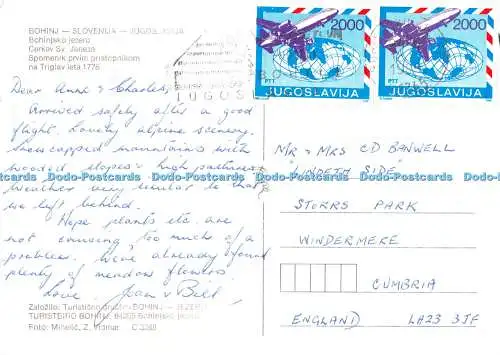 BOHINJ – SLOVENIJA – JUGOSLAVIJA
Bohinjsko jezero
Cerkev Sv. Janeza
Spomenik prvim pristopnikom
na Triglav leta 1778
2000
2000
PTT
JUGOSLAVIJA
PTT
JUGOSLAVIJA
Dear Anne & Charles,
Arrived safely after a good
flight. Lovely alpine scenery,
snowcapped mountains with
wooded slopes & high pastures.
Weather very similar to that
we left behind.
Hope plants etc. are
not causing too much of a
problem. We've already found
plenty of meadow flowers.
Love, Joan & Bill.
MR & MRS CD BANWELL
"LINDETH SIDE"
STORRS PARK
WINDERMERE
CUMBRIA
ENGLAND LA23 3JF
Založilo: Turistično društvo BOHINJ – JEZERO
TURISTBIRO BOHINJ, 64265 Bohinjsko jezero
Foto: Mihelič, Z. Vidmar C 3363
Dodo-Postcards Dodo-Postcards Dodo-Postcards Dodo-Postcards